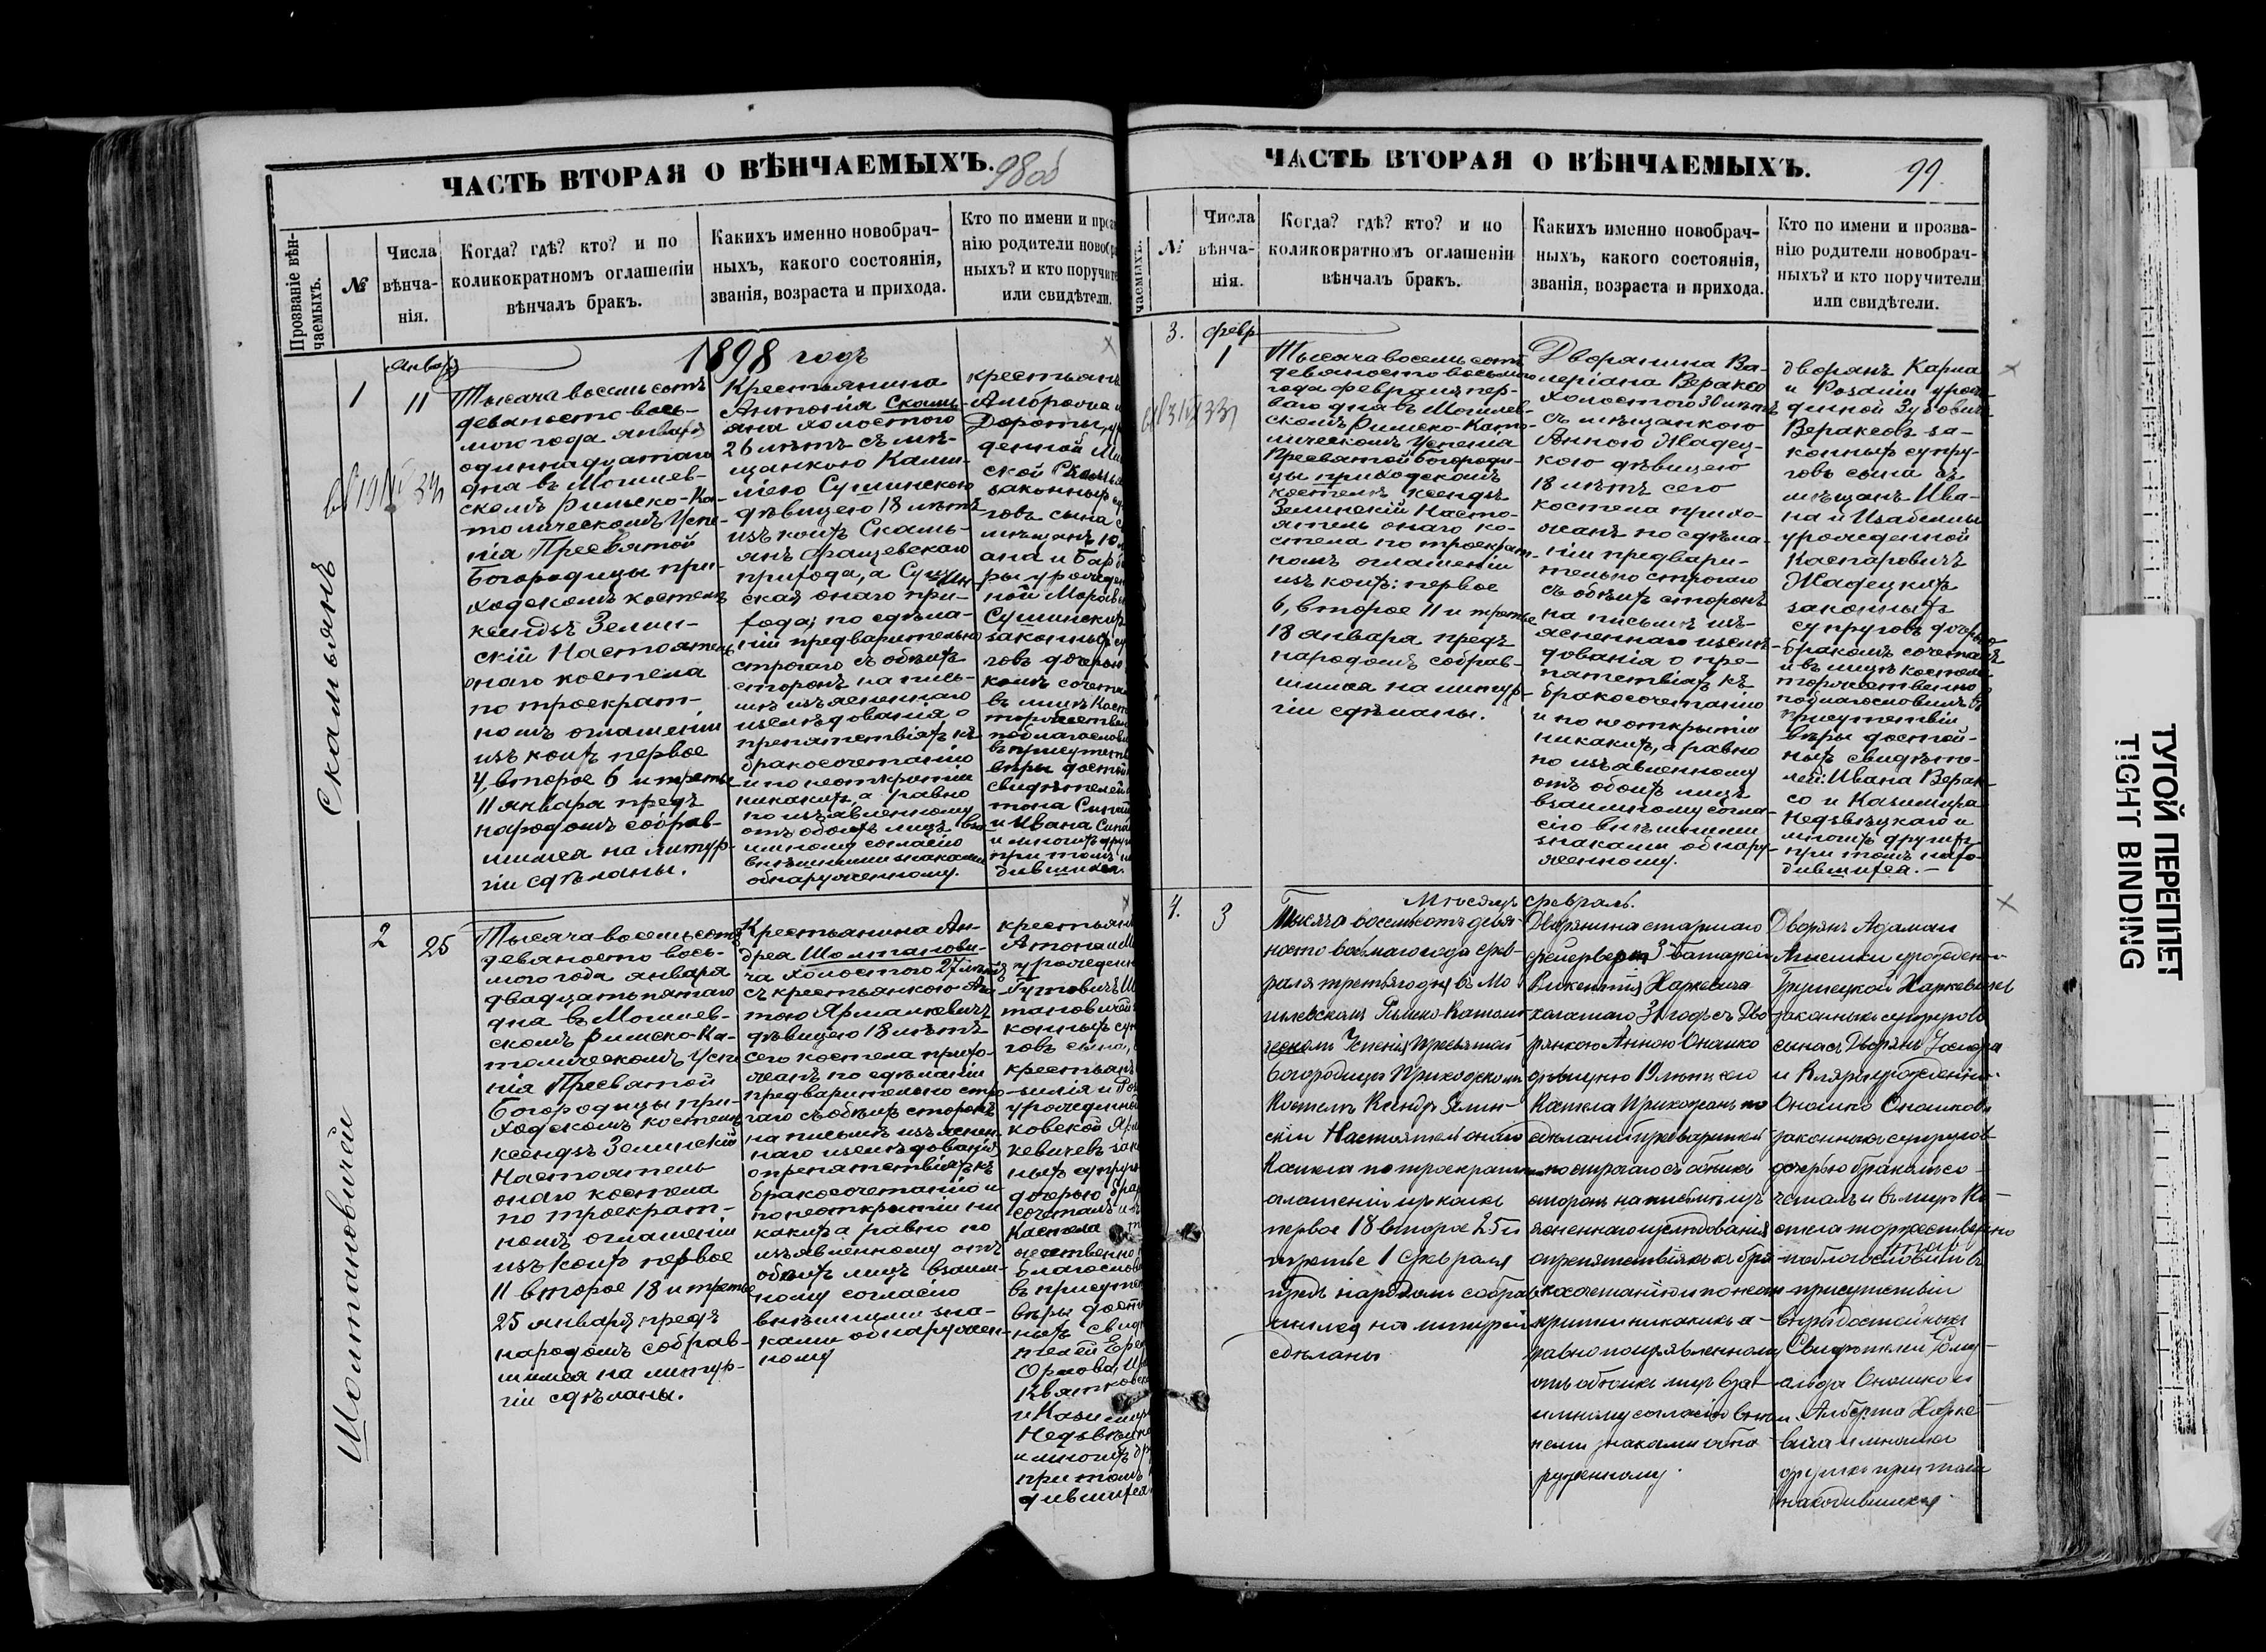 ЧАСТЬ ВТОРАЯ О ВѢНЧАЕМЫХЪ.
98об
Прозваніе вѣн-
чаемыхъ.
№
Числа
вѣнча-
нія.
Когда? гдѣ? кто? и по
коликократномъ оглашеніи
вѣнчалъ бракъ.
Какихъ именно новобрач-
ныхъ, какого состоянія,
званія, возраста и прихода.
Кто по имени и
нію родители
ныхъ? и кто
или свидѣтели.
1898 годъ
Скамьянъ
1
Январ
11
Тысяча восемьсотъ
девяносто вось-
мого года января
одиннадцатаго
дня въ Могилев-
скомъ Римско-Ка-
толическомъ Успе-
нія Пресвятой
Богородицы при-
ходскомъ костелѣ
ксендзъ Зелин-
скій Настоятель
онаго костела
по троекрат-
номъ оглашеніи
изъ коихъ первое
4, второе 6 и третье
11 января предъ
народомъ собрав-
шимся на литур-
гіи сдѣланы.
Крестьянина
Антонія Скамь-
яна холостого
26 лѣтъ съ мѣ-
щанкою Ками-
лією Сушинскою
дѣвицею 18 лѣтъ
изъ коихъ Скамь-
янъ Фащевскаго
прихода, а Сушин-
ская онаго при-
хода; по сдѣла-
ніи предварительно
строгаго съ обѣихъ
сторонъ на пись-
мѣ изъясненнаго
изслѣдованія о
препятствіяхъ къ
бракосочетанію
и по неоткрытіи
никакихъ, а равно
по изъявленному
отъ обоихъ лицъ вза-
имному согласію
внѣшними знаками
обнаруженному.
крестьянъ
Амброзія
Дороты,
денной
ской
законныхъ
говъ сына
мѣщанъ
ана и
ры урожден
ной
Сушинскихъ
законныхъ
говъ дочерью
комъ
въ лицѣ
торжествен
поблагослови
въ присутств
вѣры достой
свидѣтелей
тона
и Ивана
и многихъ
при томъ
дившихся.
Шолтановичей
2
25
Тысяча восемьсотъ
девяносто вось-
мого года января
двадцать пятаго
дня въ Могилев-
скомъ Римско-Ка-
толическомъ Успе
нія Пресвятой
Богородицы при-
ходскомъ костелѣ
ксендзъ Зелинскій
Настоятель
онаго костела
по троекрат-
номъ оглашеніи
изъ коихъ первое
11 второе 18 и третье
25 января, предъ
народомъ собрав-
шимся на литур-
гіи сдѣланы.
Крестьянина Ан-
дрея Шолтанови-
ча холостого 27 лѣтъ
съ крестьянкою Ага-
тою Ярмалкевичъ
дѣвицею 18 лѣтъ
сего костела прихо-
жанъ по сдѣланіи
предварительно стро-
гаго съ обѣихъ сторонъ
на письмѣ изъяснен-
наго изслѣдованія
о препятствіяхъ къ
бракосочетанію и
по неоткрытіи ни
какихъ а равно по
изъявленному отъ
обоихъ лицъ взаим-
ному согласію
внѣшними зна-
ками обнаружен-
ному
крестьянъ
урожденн
говъ сына,
крестьянъ
урожденной
ковской
кевичевъ
ныхъ супруг
дочерью
сочеталъ
Костела
жественно
благослови
въ присутст
вѣры
ныхъ
телей
Орлова,
Квятковск
и Казимира
и многихъ
при томъ
дившихся
ЧАСТЬ ВТОРАЯ О ВѢНЧАЕМЫХЪ.
99.
чаемыхъ.
№
Числа
вѣнча-
нія.
Когда? гдѣ? кто? и по
коликократномъ оглашеніи
вѣнчалъ бракъ.
Какихъ именно новобрач-
ныхъ, какого состоянія,
званія, возраста и прихода.
Кто по имени и прозва-
нію родители новобрач-
ныхъ? и кто поручители
или свидѣтели.
3.
Февр
1
Тысяча восемьсотъ
девяносто восьмого
года февраля пер-
ваго дня въ Могилев-
скомъ Римско-Като-
лическомъ Успенія
Пресвятой Богороди-
цы приходскомъ
костелѣ ксендзъ
Зелинскій Насто-
ятель онаго ко-
стела по троекрат-
номъ оглашеніи
изъ коихъ: первое
6, второе 11 и третье
18 января предъ
народомъ собрав-
шимся на литур-
гіи сдѣланы.
Дворянина Ва-
леріана Вераксо
холостого 30 лѣтъ
съ мѣщанкою
Анною Жадец-
кою дѣвицею
18 лѣтъ сего
костела прихо-
жанъ по сдѣла-
ніи предвари-
тельно строгаго
съ обѣихъ сторонъ
на письмѣ изъ-
ясненнаго изслѣ-
дованія о пре-
пятствіяхъ къ
бракосочетанію
и по неоткрытіи
никакихъ, а равно
по изъявленному
отъ обоихъ лицъ
взаимному согла-
сію внѣшними
знаками обнару-
женному.
дворянъ Карла
и Розаліи урож-
денной Зубовичъ
Вераксовъ за-
конныхъ супру-
говъ сына съ
мѣщанъ Ива-
на и Изабеллы
урожденной
Каспаровичъ
Жадецкихъ
законныхъ
супруговъ дочерью
бракомъ сочеталъ
и въ лицѣ костела
торжественно
поблагословилъ въ
присутствіи
вѣры достой-
ныхъ свидѣте-
лей: Ивана Верак-
со и Казимира
Недзвѣцкаго и
многихъ другихъ
при томъ нахо-
дившихся.-
Мѣсяцъ февраль.
4.
3
Тысяча восемьсотъ девя-
носто восьмаго года фев-
раля третьяго дня въ Мо
гилевскомъ Римско-Католи-
ческомъ Успенія Пресвятой
Богородицы Приходскомъ
Костелѣ Ксендзъ Зелин-
скій Настоятель онаго
Костела по троекратномъ
оглашеніи изъ коихъ
первое 18 второе 25 и
третье 1 февраля
предъ народомъ собрав-
шимся на литургіи
сдѣланы
Дворянина старшаго
фейерверк 3й батареи
Викентія Харкевича
холостаго 31 годъ съ Дво
рянкою Анною Оношко
дѣвицею 19 лѣтъ сего
Костела Прихожанъ по
сдѣланіи предваритель-
но строгаго съ обѣихъ
сторонъ на письмѣ изъ
ясненнаго изслѣдованія
о препятствіяхъ къ бра-
косочетанію и по неот-
крытіи никакихъ а-
равно по изъявленному
отъ обоихъ лицъ вза-
имному согласію внѣш-
ними знаками обна-
руженному.
Дворянъ Адама и
урожденной
Харкевичей
законныхъ супруговъ
сына съ Дворянъ Іосифа
и Клары урожденной
Оношко Оношковъ
законныхъ супруговъ
дочерью бракомъ со-
четалъ и въ лицѣ Ко-
стела торжественно
поблагословилъ въ
присутствіи
вѣры достойныхъ
Свидѣтелей Рому-
альда Оношко и
Альберта Харке-
вича и многихъ
другихъ при томъ
находившихся.
ТУГОЙ ПЕРЕПЛЕТ
TIGHT BINDING